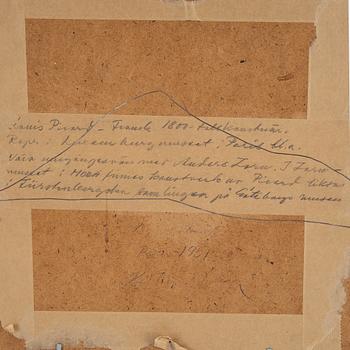 Louis Picard – Fransk 1800-talskonstnär.
Repr. i Luxembourg museet i Paris bl.a.
Vara umgangesvän med Anders Zorn. I Zorn
museet i Mora finnes konstverk av Picard liksom
i Fürstenbergska samlingen på Göteborgs museum
1951